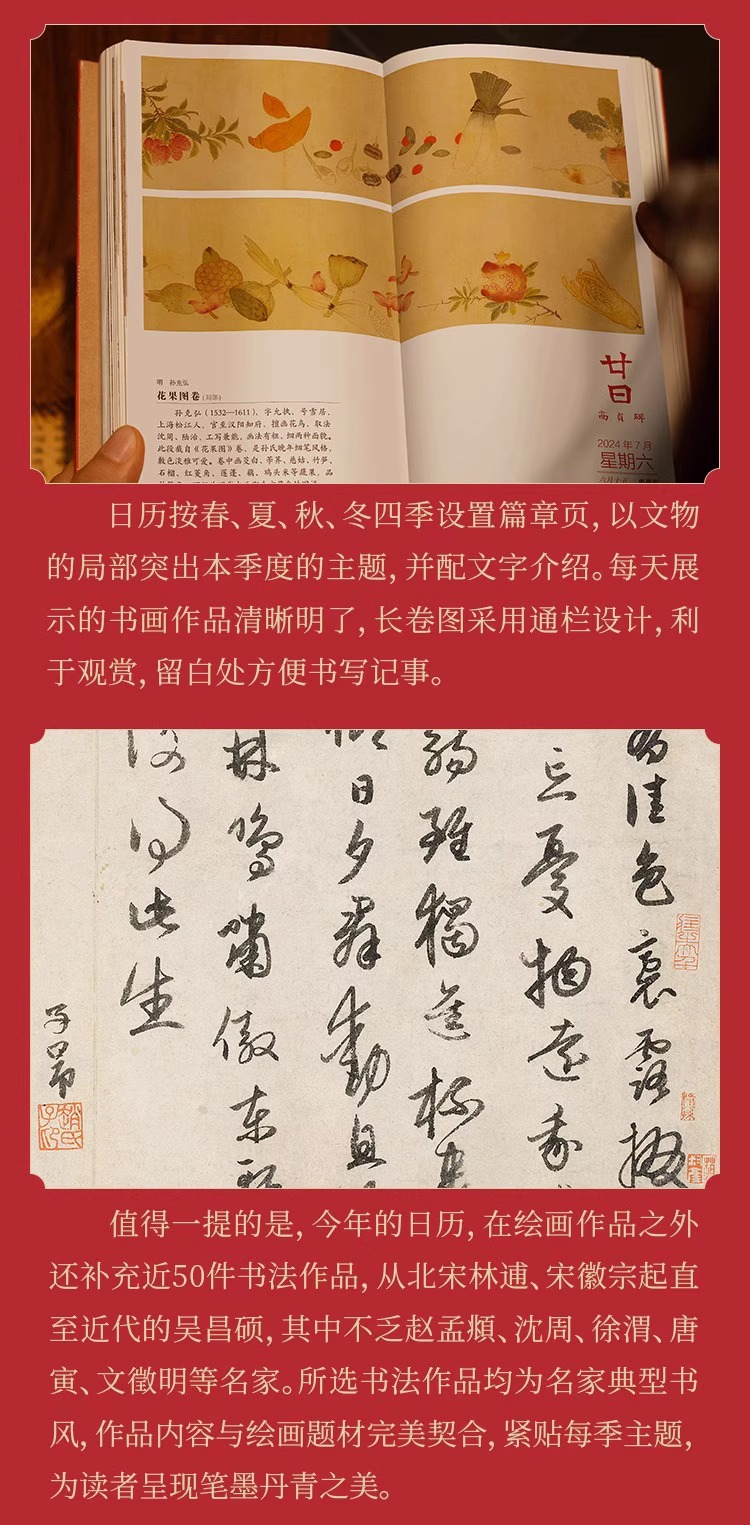 明 孙克弘
花果图卷（局部）
孙克弘（1532—1611），字允执，号雪居，
上海松江人，官至汉阳知府，擅画花鸟，取法
沈周、陆治，工写兼能，画法有粗、细两种面貌。
此段截自《花果图》卷，是孙氏晚年细笔风格，
敷色淡雅可爱。卷中画茭白、荸荠、慈姑、竹笋、
石榴、红菱角、莲蓬、藕、鸡头米等蔬果，品
廿
日
高贞碑
2024年7月
星期六
日历按春、夏、秋、冬四季设置篇章页，以文物
的局部突出本季度的主题，并配文字介绍。每天展
示的书画作品清晰明了，长卷图采用通栏设计，利
于观赏，留白处方便书写记事。
佳色裛露掇
忘忧物远我
觞虽独进杯
日夕群动息
林鸟啸傲东
复得此生
子昂
值得一提的是，今年的日历，在绘画作品之外
还补充近50件书法作品，从北宋林逋、宋徽宗起直
至近代的吴昌硕，其中不乏赵孟頫、沈周、徐渭、唐
寅、文徵明等名家。所选书法作品均为名家典型书
风，作品内容与绘画题材完美契合，紧贴每季主题，
为读者呈现笔墨丹青之美。